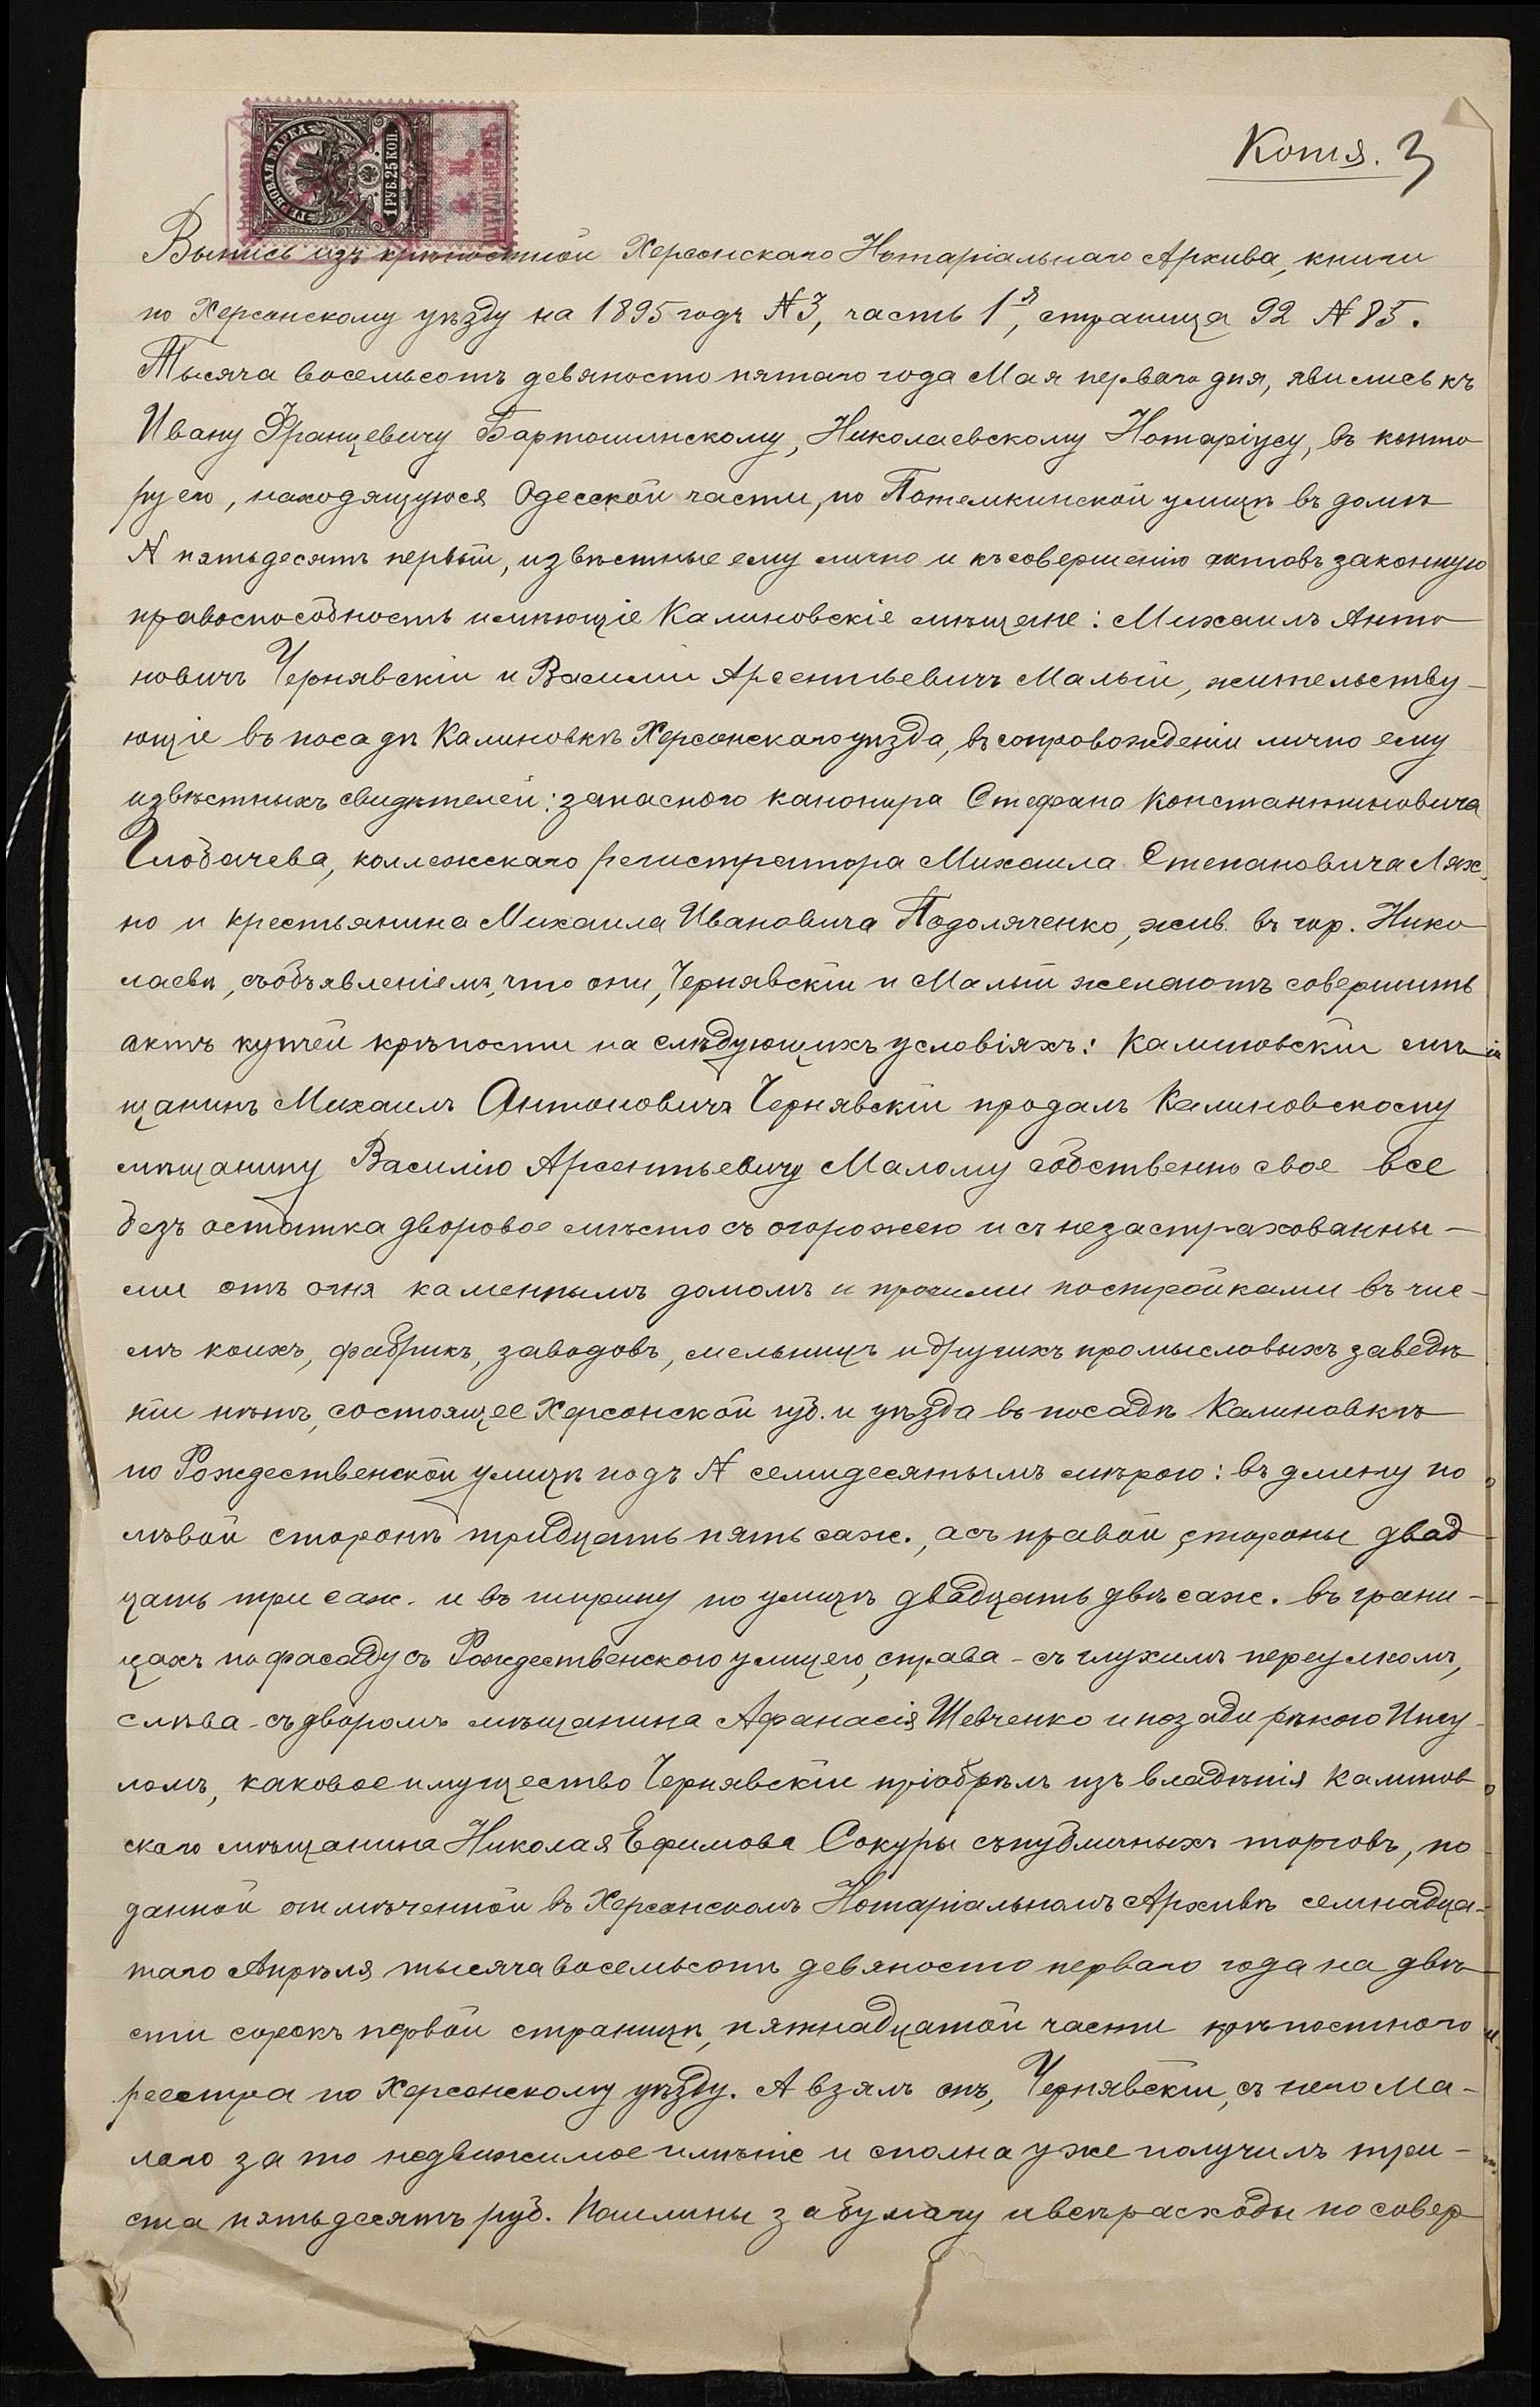 Копія. 3
ГЕРБОВАЯ МАРКА
1 РУБ. 25 КОП.
Выпись изъ крѣпостной Херсонскаго Нотаріальнаго Архива, книги
по Херсонскому уѣзду на 1895 годъ N 3, часть 1я, страница 92 N 85.
Тысяча восемьсотъ девяносто пятаго года Мая перваго дня, явились къ
Ивану Францевичу Бартошинскому, Николаевскому Нотаріусу, въ конто
ру его, находящуюся Одесской части, по Потемкинской улицѣ въ домѣ
N пятьдесятъ первый, извѣстные ему лично и къ совершенію актовъ законную
правоспособность имѣющіе Калиновскіе мѣщане: Михаилъ Анто
новичъ Чернявскій и Василій Арсентьевичъ Малый, жительству-
ющіе въ посадѣ Калиновкѣ Херсонскаго уѣзда, въ сопровожденіи лично ему
извѣстныхъ свидѣтелей: запасного канонира Стефана Константиновича
Глобачева, коллежскаго регистратора Михаила Степановича Лях
но и крестьянина Михаила Ивановича Подоляченко, жив. въ гор. Нико
лаевѣ, съ объявленіемъ, что они, Чернявскій и Малый желаютъ совершить
актъ купчей крѣпости на слѣдующихъ условіяхъ: Калиновскій мѣ
щанинъ Михаилъ Антоновичъ Чернявскій продалъ Калиновскому
мѣщанину Василію Арсентьевичу Малому собственно свое все
безъ остатка дворовое мѣсто съ огорожею и съ незастрахованны-
ми отъ огня каменнымъ домомъ и прочими постройками въ чис-
лѣ коихъ, фабрикъ, заводовъ, мельницъ и другихъ промысловыхъ заведѣ
ній нѣтъ, состоящее Херсонской губ. и уѣзда въ посадѣ Калиновкѣ
по Рождественской улицѣ подъ N семидесятымъ мѣрою: въ длину по
лѣвой сторонѣ тридцать пять саж., а съ правой стороны двад
цать три саж. и въ ширину по улицѣ двадцать двѣ саж. въ грани-
цахъ по фасаду съ Рождественскою улицею, справа - съ глухимъ переулкомъ,
слѣва - съ дворомъ мѣщанина Афанасія Шевченко и позади рѣкою Ингу
ломъ, каковое имущество Чернявскій пріобрѣлъ изъ владѣнія Калинов
скаго мѣщанина Николая Ефимова Сокуры съ публичныхъ торговъ, по
данной отмѣченной въ Херсонскомъ Нотаріальномъ Архивѣ семнадца-
таго Апрѣля тысяча восемьсотъ девяносто перваго года на двѣ
сти сорокъ первой страницѣ, пятнадцатой части крѣпостного
реестра по Херсонскому уѣзду. А взялъ онъ, Чернявскій, съ него Ма-
лаго за то недвижимое имѣніе и сполна уже получилъ три-
ста пятьдесятъ руб. Пошлины за бумагу и всѣ расходы по совер